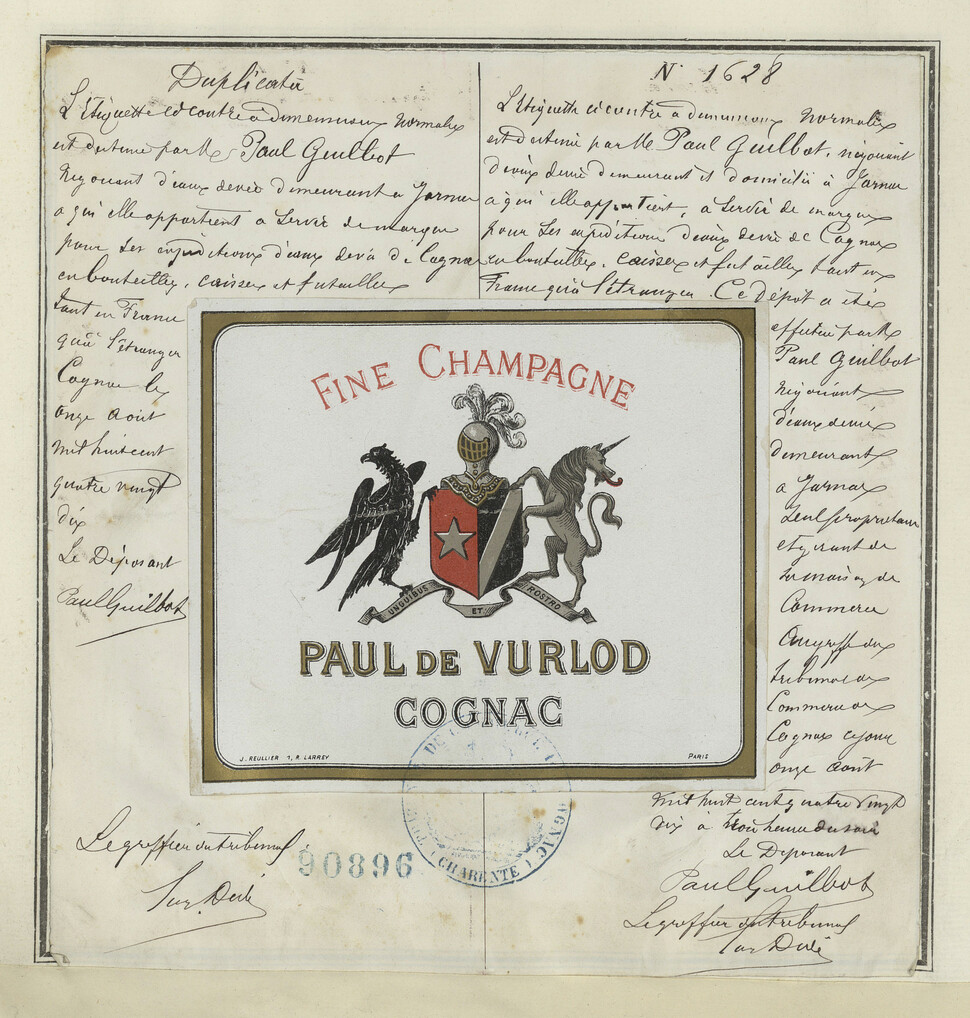 Duplicata
L'Etiquette ci contre à dimensions normales
est destinée par M. Paul Guilbot
Négociant d'eaux de vie demeurant à Jarnac
à qui elle appartient à servir de marque
pour ses expéditions d'eaux de vie de Cognac
en bouteilles, caisses et futailles
tant en France
qu'à l'étranger
Cognac le
onze Août
mil huit cent
quatre vingt
dix
Le Déposant
Paul Guilbot
Le greffier du tribunal
N° 1628
L'Etiquette ci contre à dimensions normales
est destinée par M. Paul Guilbot, négociant
d'eaux de vie demeurant et domicilié à Jarnac
à qui elle appartient, à servir de marque
pour ses expéditions d'eaux de vie de Cognac
en bouteilles, caisses et futailles tant en
France qu'à l'étranger. Ce Dépôt a été
effectué par M.
Paul Guilbot
négociant
d'eaux de vie
demeurant
à Jarnac
seul propriétaire
et gérant de
sa maison de
Commerce
Au greffe du
tribunal de
Commerce de
Cognac ce jour
onze Août
mil huit cent quatre vingt
dix à trois heures du soir
Le Déposant
Paul Guilbot
Le greffier du tribunal
FINE CHAMPAGNE
UNGUIBUS ET ROSTRO
PAUL DE VURLOD
COGNAC
J. REULLIER 7, R. LARREY
PARIS
90896
CHARENTE